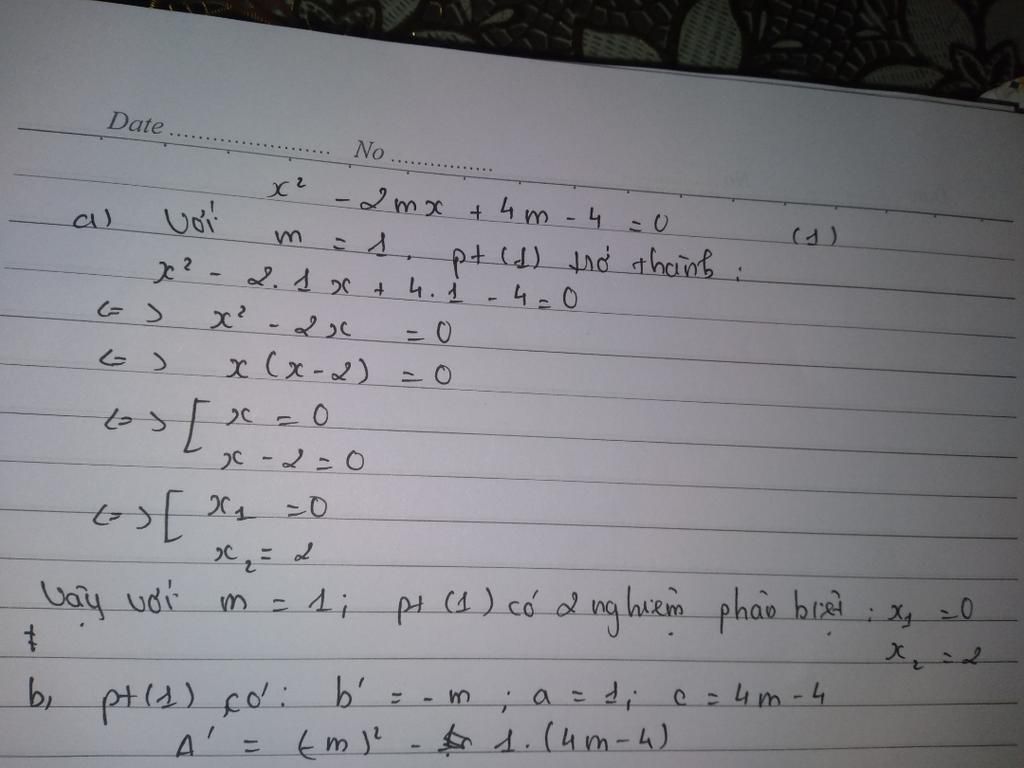 Date ........................ No ...............
x² - 2mx + 4m - 4 = 0 (1)
a) Với m = 1, pt (1) trở thành :
x² - 2.1x + 4.1 - 4 = 0
<=> x² - 2x = 0
<=> x (x - 2) = 0
<=> [ x = 0
x - 2 = 0
<=> [ x₁ = 0
x₂ = 2
Vậy với m = 1; pt (1) có 2 nghiệm phân biệt : x₁ = 0
x₂ = 2
b, pt (1) có: b' = -m ; a = 1; c = 4m - 4
Δ' = (-m)² - 1.(4m - 4)